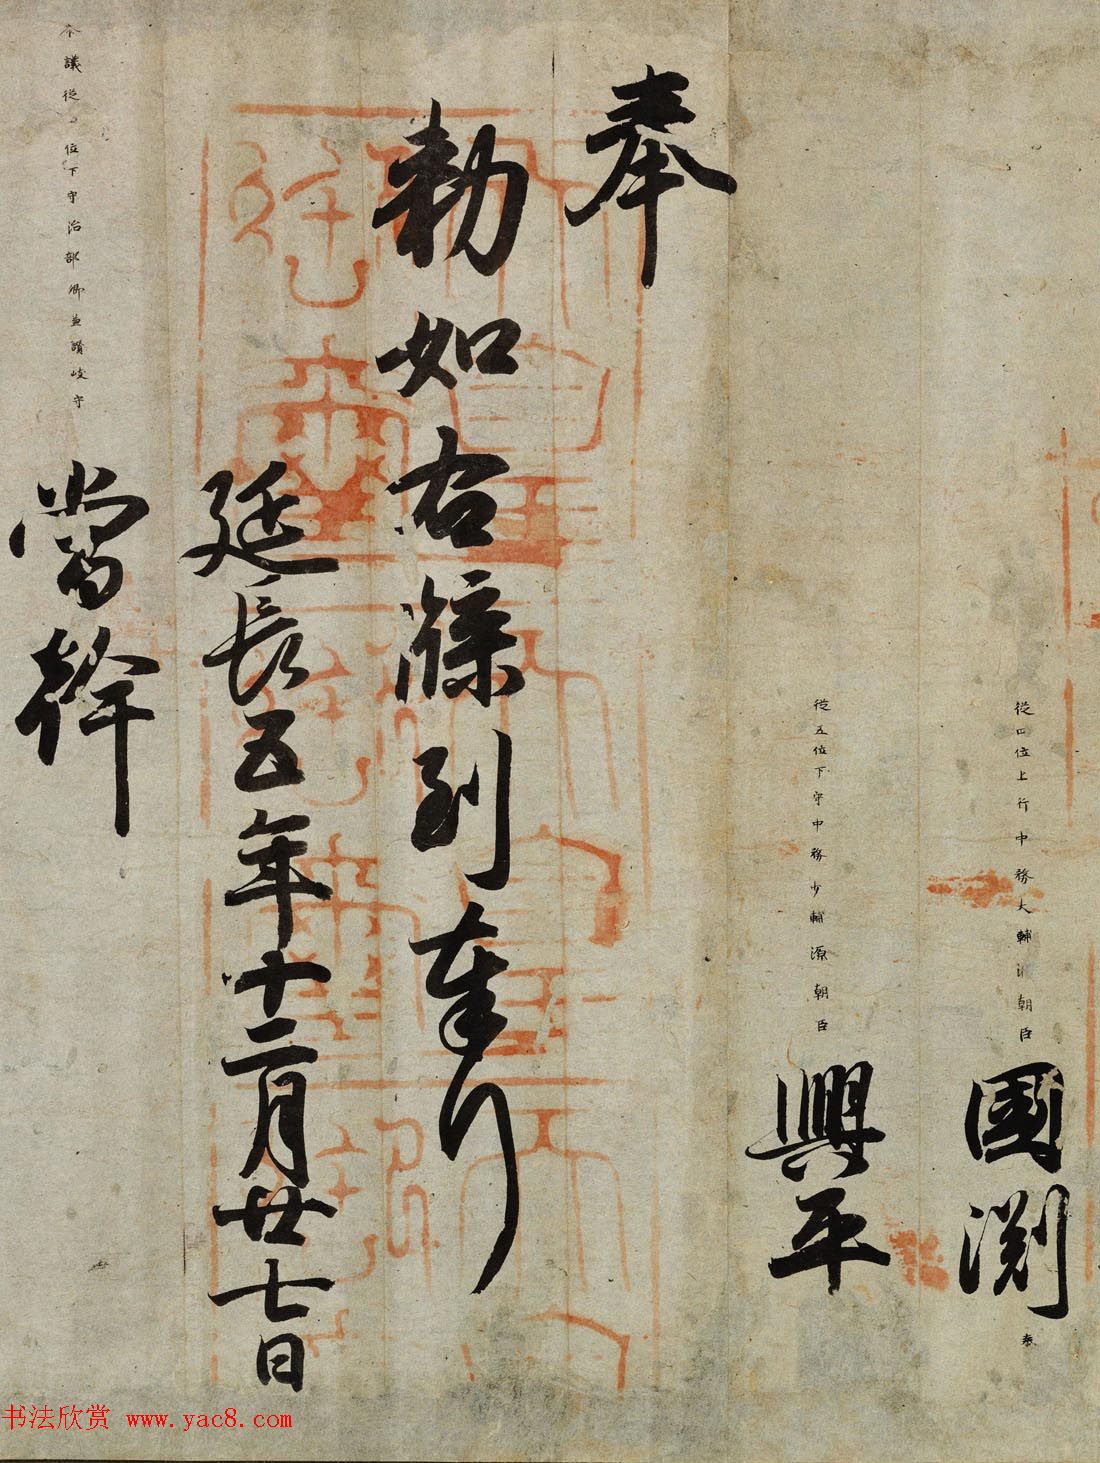 從四位上行中務大輔源朝臣
國淵
奉
從五位下守中務少輔源朝臣
興平
奉
勅如右牒到奉行
延長五年十二月廿七日
參議從四位下守治部卿兼讚岐守
當幹
书法欣赏 www.yac8.com